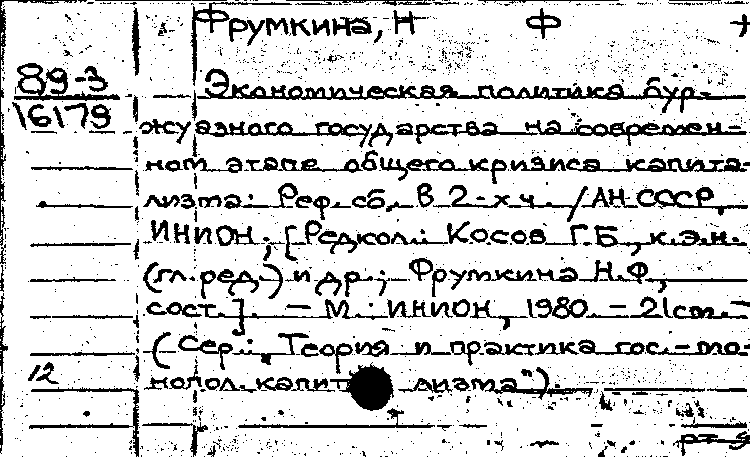 Фрумкина, Н Ф
89-3
16179
Экономическая политика бур-
жуазного государства на современ-
ном этапе общего кризиса капита-
лизма: Реф. сб. В 2-х ч. / АН СССР,
ИНИОН; [Редкол.: Косов Г.Б., к.э.н.
(гл. ред.) и др.; Фрумкина Н.Ф.,
сост.]. - М.: ИНИОН, 1980. - 21см. -
(Сер.: "Теория и практика гос.-мо-
12
нопол. капитализма").